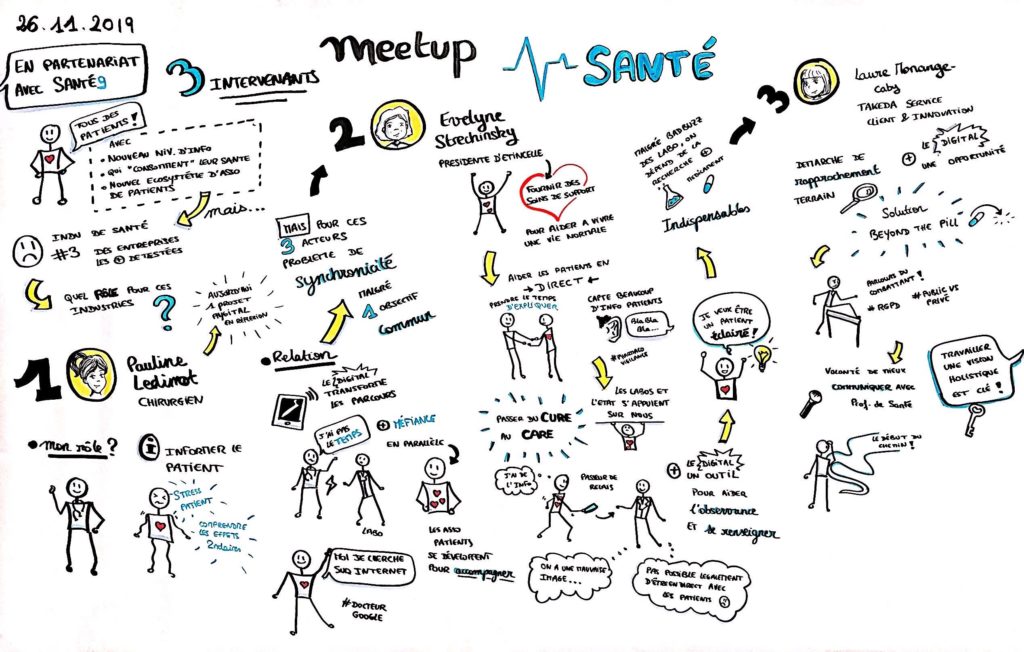 26.11.2019
EN PARTENARIAT
AVEC SANTÉ9
3 INTERVENANTS
Meetup
SANTÉ
TOUS DES
PATIENTS !
AVEC
• NOUVEAU NIV. D'INFO
• QUI "CONSOMMENT" LEUR SANTÉ
• NOUVEL ECOSYSTÈME D'ASSO
DE PATIENTS
mais...
INDU DE SANTÉ
#3 DES ENTREPRISES
LES + DETESTÉES
QUEL RÔLE POUR CES
INDUSTRIES ?
AUJOURD'HUI
1 PROJET
DIGITAL
EN RÉFLEXION
1
Pauline
CHIRURGIEN
• mon rôle ?
INFORMER LE
PATIENT
STRESS
PATIENT
COMPRENDRE
LES EFFETS
2ndaires
MAIS POUR CES
3 ACTEURS
PROBLEME DE
synchronicité
MALGRÉ
1 OBJECTIF
commun
• Relation
LE DIGITAL
TRANSFORME
LES PARCOURS
J'AI PAS
LE TEMPS
LABO
+ MÉFIANCE
EN PARALLÈLE
LES ASSO
PATIENTS
SE DÉVELOPPENT
POUR accompagner
MOI JE CHERCHE
SUR INTERNET
#DOCTEUR
GOOGLE
2
Evelyne
Strechinsky
PRESIDENTE D'ETINCELLE
FOURNIR DES
SOINS DE SUPPORT
POUR AIDER A VIVRE
UNE VIE NORMALE
AIDER LES PATIENTS EN
DIRECT
PRENDRE LE TEMPS
D'EXPLIQUER
CAPTE BEAUCOUP
D'INFO PATIENTS
Bla Bla
Bla...
#PHARMACO
VIGILANCE
LES LABOS ET
L'ETAT S'APPUIENT
SUR NOUS
PASSER DU CURE
AU CARE
J'AI DE
L'INFO
PASSEUR DE
RELAIS
ON A UNE MAUVAISE
IMAGE...
PAS POSSIBLE LEGALEMENT
D'ÊTRE EN DIRECT AVEC
LES PATIENTS
+ LE DIGITAL
UN OUTIL
POUR AIDER
l'observance
ET se renseigner
JE VEUX ÊTRE
UN PATIENT
éclairé !
Indispensables
MALGRÉ BADBUZZ
DES LABO, ON
DÉPEND DE LA
RECHERCHE +
MEDICAMENT
3
Laure Monange-
Caby
TAKEDA SERVICE
CLIENT & INNOVATION
DEMARCHE DE
rapprochement
TERRAIN
+ LE DIGITAL
UNE OPPORTUNITÉ
Solution
BEYOND THE PILL
PARCOURS DU
COMBATTANT !
#RGPD
#PUBLIC VS
PRIVÉ
VOLONTÉ DE MIEUX
COMMUNIQUER AVEC
Prof. de Santé
TRAVAILLER
UNE VISION
HOLISTIQUE
EST CLÉ !
LE DÉBUT DU
CHEMIN !